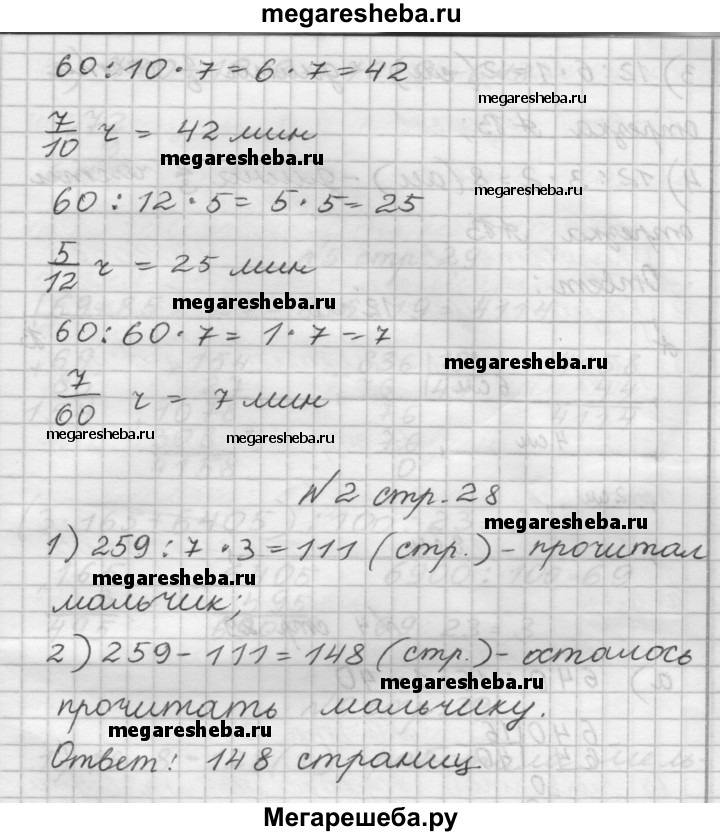 megaresheba.ru
60 : 10 · 7 = 6 · 7 = 42
megaresheba.ru
7/10 ч = 42 мин
megaresheba.ru
megaresheba.ru
60 : 12 · 5 = 5 · 5 = 25
5/12 ч = 25 мин
megaresheba.ru
60 : 60 · 7 = 1 · 7 = 7
megaresheba.ru
7/60 ч = 7 мин
megaresheba.ru megaresheba.ru
№ 2 стр. 28
megaresheba.ru
1) 259 : 7 · 3 = 111 (стр.) - прочитал
megaresheba.ru
мальчик;
2) 259 - 111 = 148 (стр.) - осталось
megaresheba.ru
прочитать мальчику.
megaresheba.ru
Ответ: 148 страниц
Мегарешеба.ру